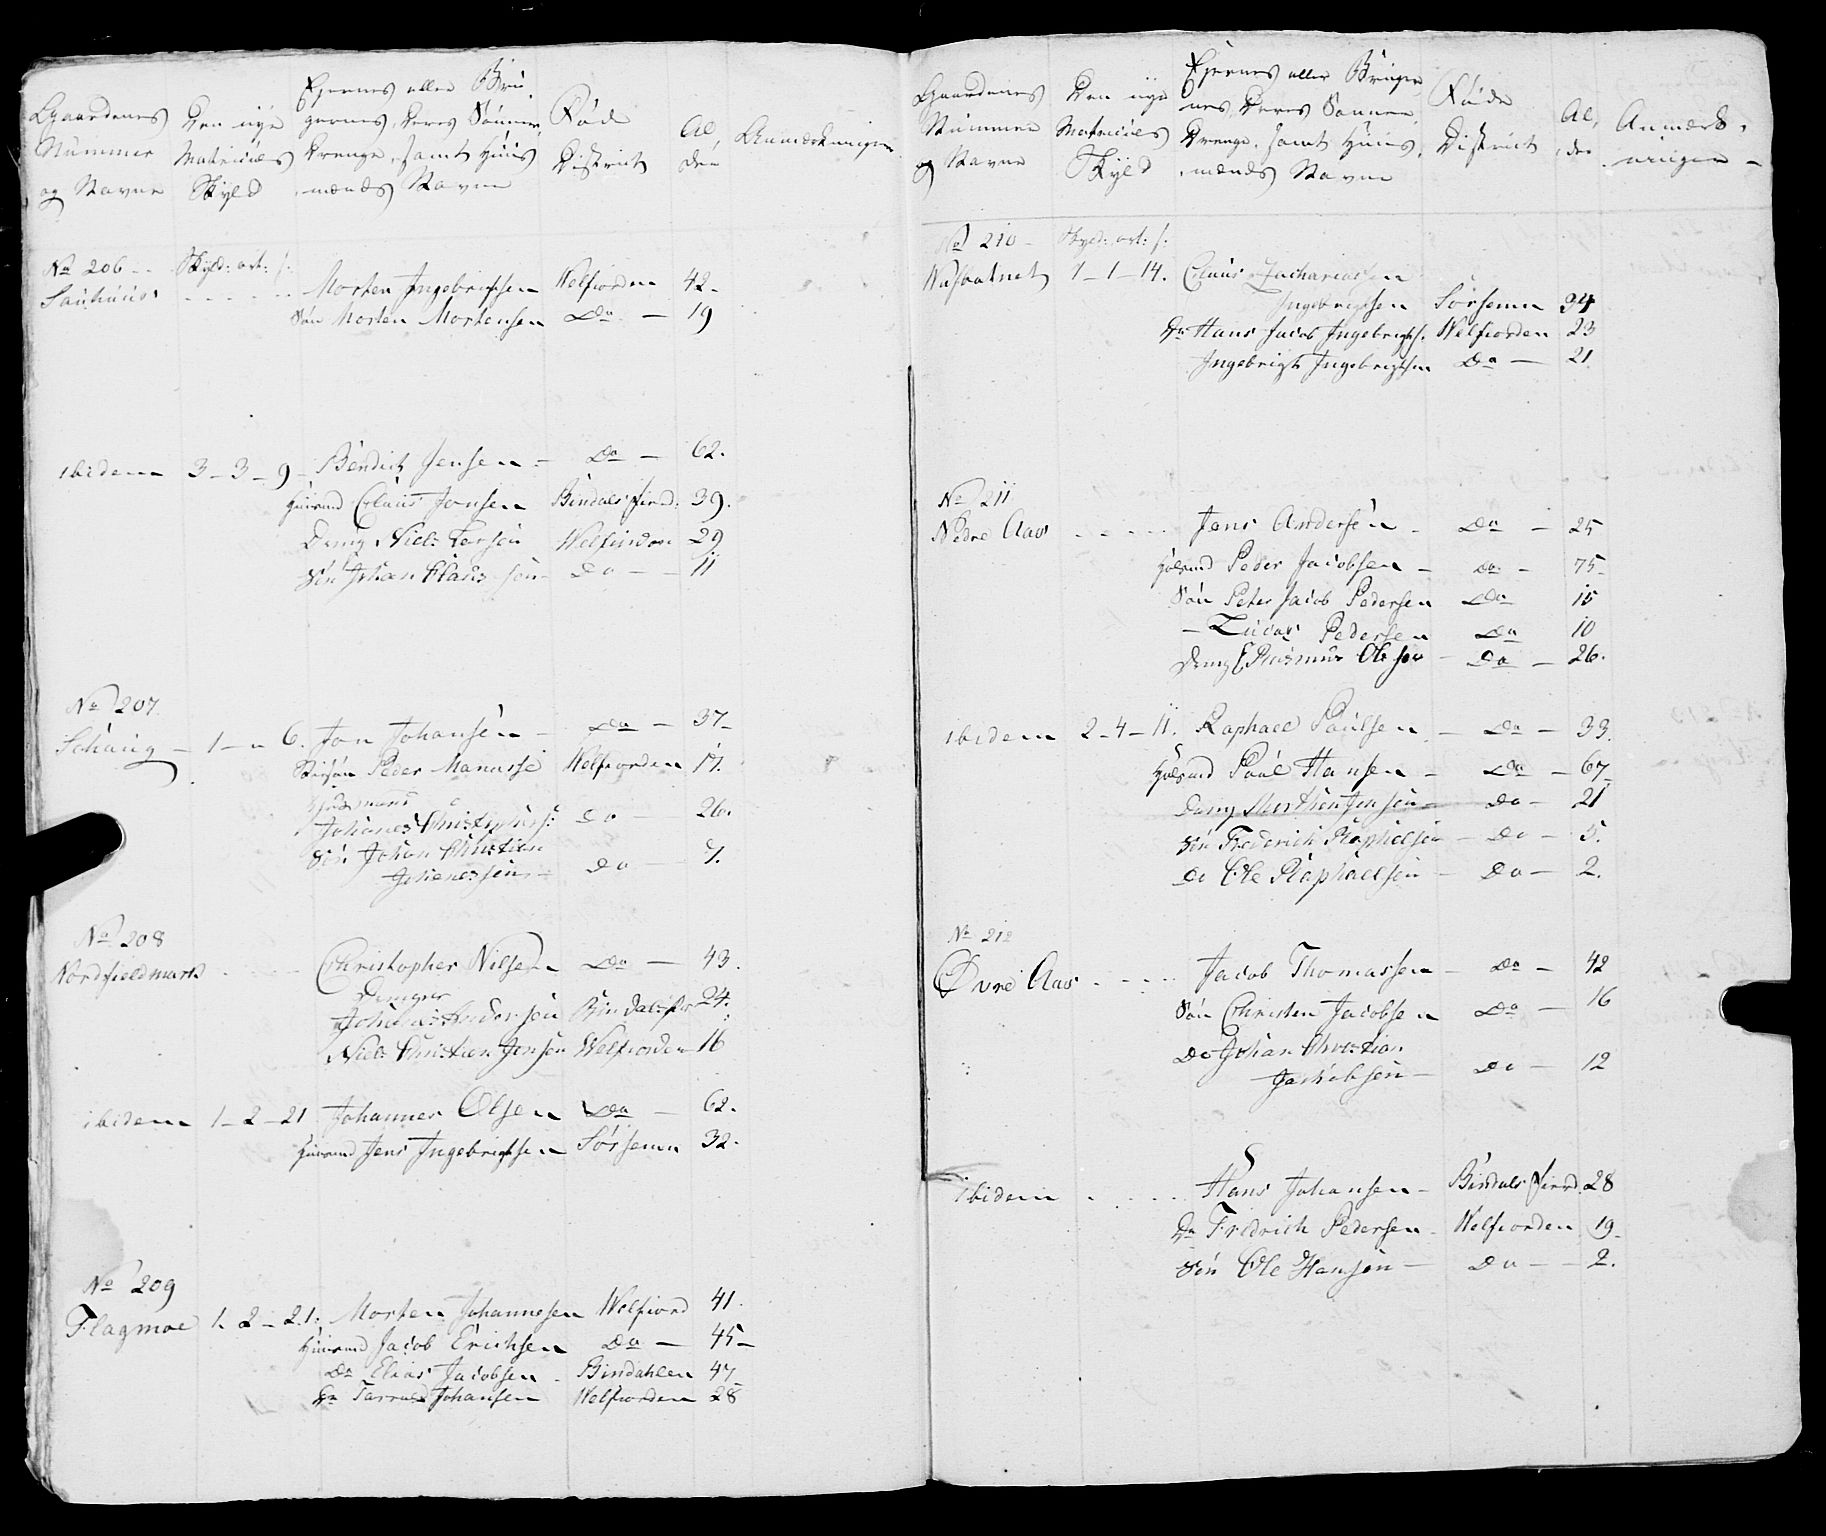 Gaardenes
Nummer
og Navne
Den nye
Matriculs
Skyld
Ejernes eller Bru-
gernes, deres Sønner,
Drenge, samt Huus-
mænds Navne
Føde
District
Al-
der
Anmærkninger
No 206 Skyld: ort: s:
Sauhuus Morten Ingebrigtsen Welfiorden 42
Søn Morten Mortensen Do 19
ibidem 3-3-9 Bendich Jensen Do 62
Huusmd Claus Jonsen Bindals fierd: 39
Dreng Niels Larsen Welfiorden 29
Søn Johan Claussøn Do 11
No 207
Schaug 1 - " 6. Jon Johansen Do 37
Stifsøn Peder Manasse Welfiorden 17.
Huusmand
Johanes Christophers: Do 26.
Søn Johan Christian
Johanessøn Do 7.
No 208
Nordfieldmark Christopher Nilsen Do 43.
Drenger
Johanes Andersen Bindalsfr 24.
Niels Christian Jensen Welfiorden 16
ibidem 1-2-21 Johannes Olsen Do 62.
Huusmd Jens Ingebrigtsen Sørsemn 32.
No 209
Flagmoe 1. 2-21. Morten Johannesen Welfiord 41.
Huusmd Jacob Erichsen Do 45
Do Elias Jacobsen Bindahlen 47
Do Tarrald Johansen Welfiorden 28
Gaardenes
Nummer
og Navne
Den nye
Matriculs
Skyld
Ejernes eller Bruger
nes, deres Sønner,
Drenge, samt Huus-
mænds Navne
Føde
District
Al-
der
Anmærk-
ninger
No 210 Skyld: ort: s:
1-1-14. Claus Zachariassen
Ingebrigtsen Sørsemn 34
Do Hans Jacob Ingebrigts. Welfiorden 23
Ingebrigt Ingebrigtsen Do 21
No 211
Nedre Aas Jens Andersen Do 25
Huusmd Peder Jacobsen Do 75
Søn Peter Jacob Pedersen Do 15
- Lucas Pedersen Do 10
Dreng Rasmus Olsen Do 26.
ibidem 2-4-11. Raphael Paulsen Do 33.
Huusmd Paul Hansen Do 67
Dreng Morthen Jensen Do 21
Søn Frederich Raphelsen Do 5.
Do Ole Raphaelsen Do 2.
No 212
Øvre Aas Jacob Thomassen Do 42
Søn Christen Jacobsen Do 16
Do Johan Christian
Jachobsen Do 12
ibidem Hans Johansen Bindals fierd. 28
Do Fredrich Pedersen Welfiorden 19
Søn Ole Hansen Do 2.